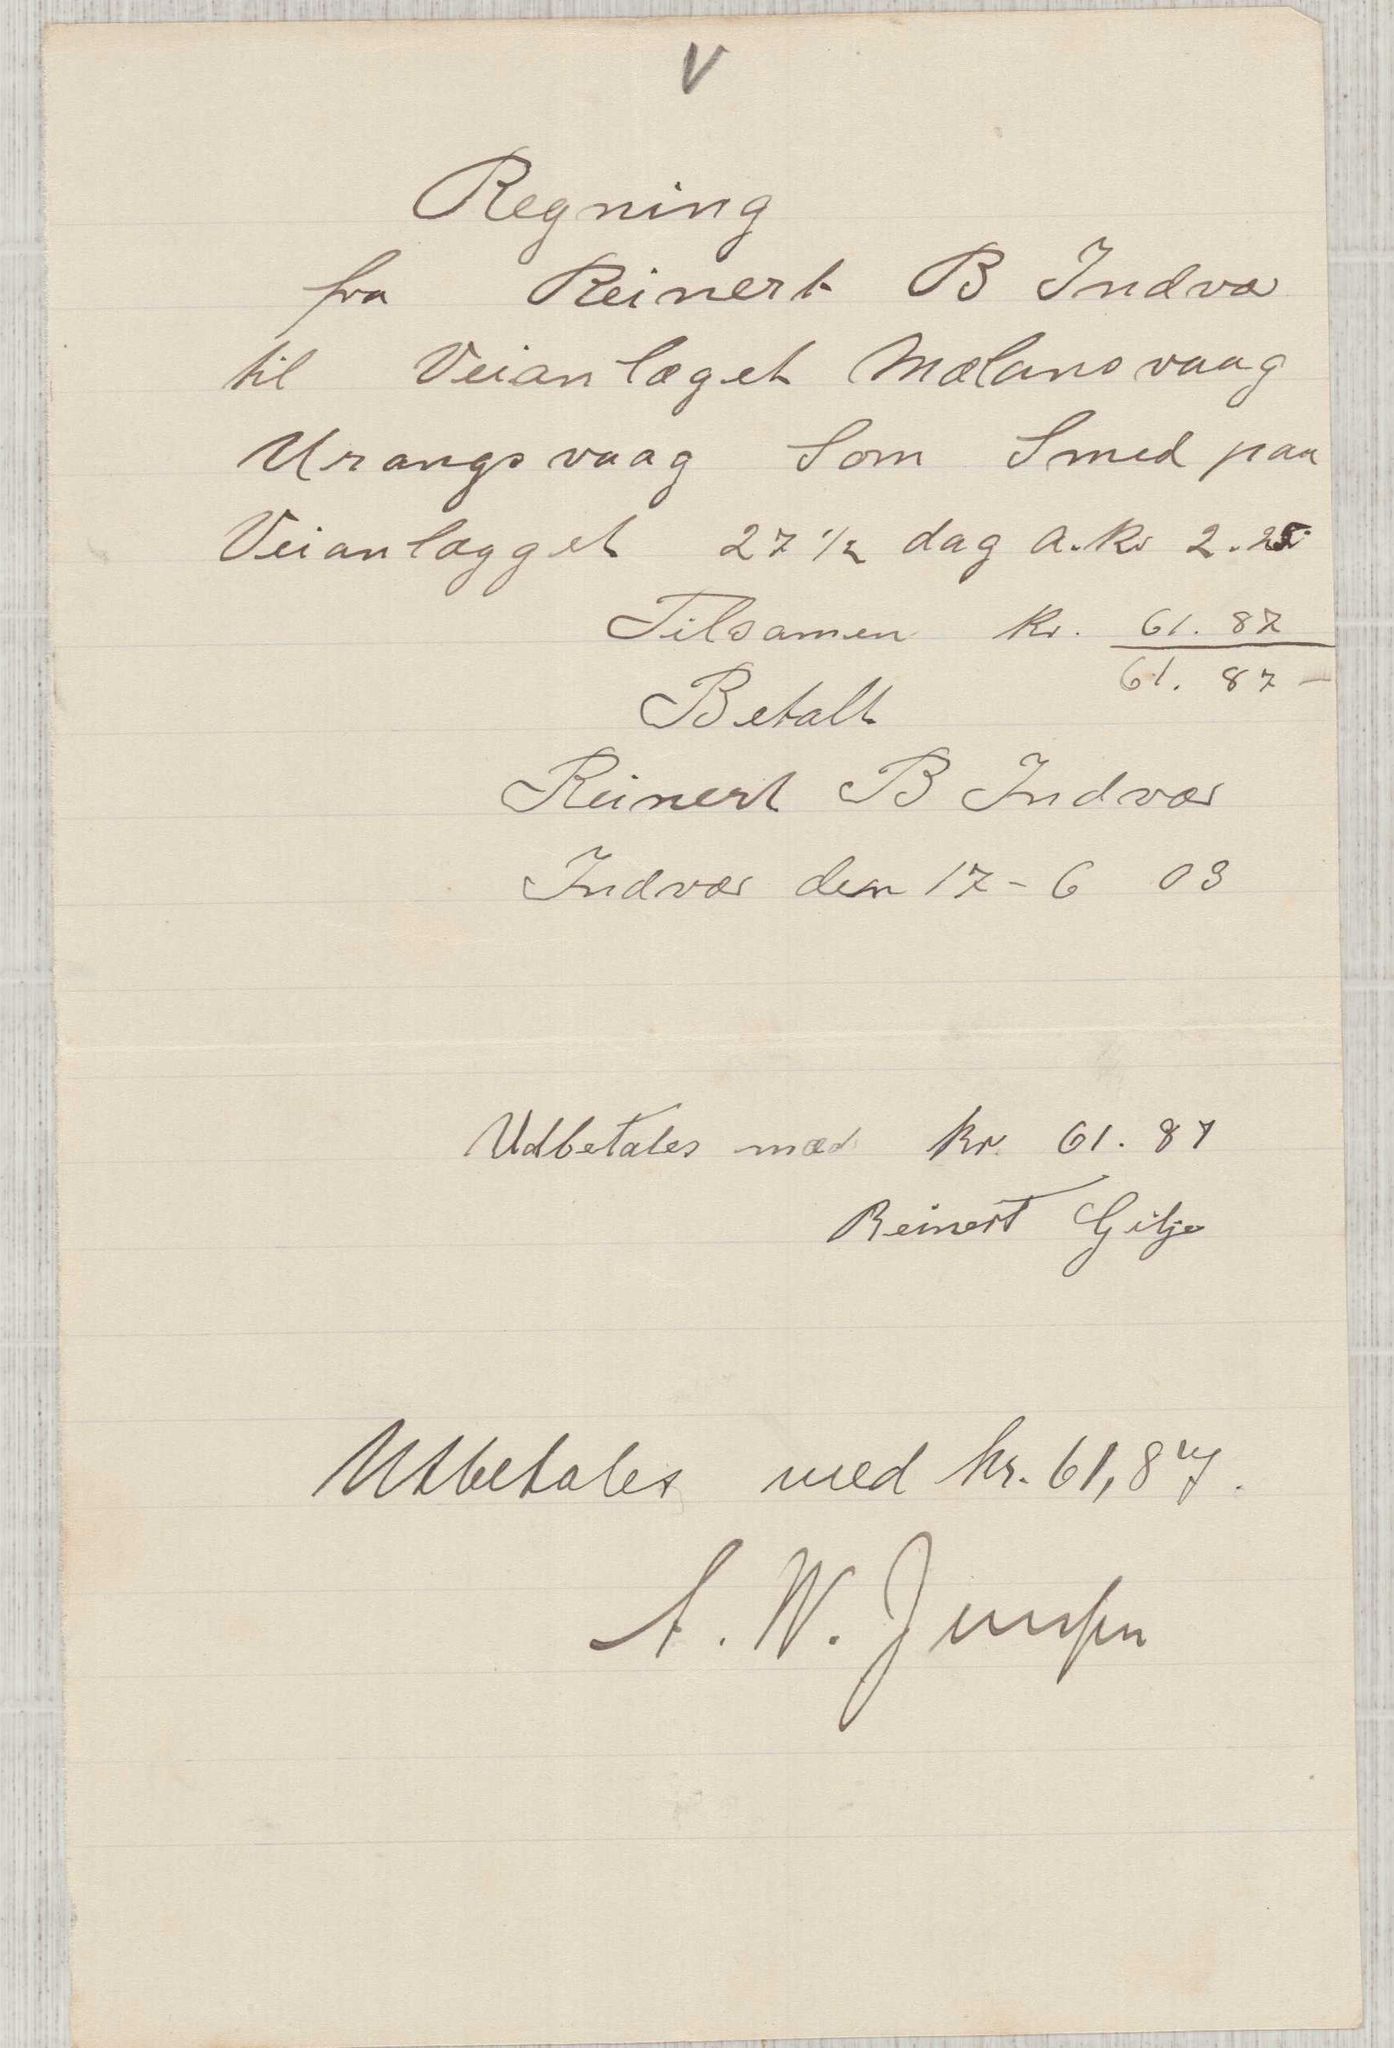 V
Regning
fra Reinert B Indvær
til Veianlæget Mælansvaag
Urangsvaag Som Smed paa
Veianlægget 27 1/2 dag a. kr 2.25
Tilsamen kr. 61.87
61.87 -
Betalt
Reinert B Indvær
Indvær den 17 - 6 03
Udbetales med kr. 61.87
Reinert Gilje
Utbetales med kr. 61,87.
A. W. Jensen